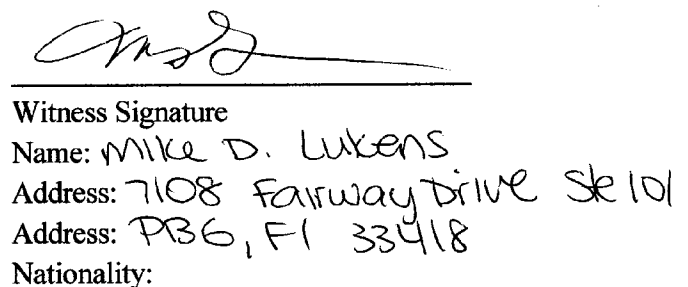 Witness Signature
Name: Mike D. Lukens
Address: 7108 Fairway Drive Ste 101
Address: PBG, Fl 33418
Nationality: